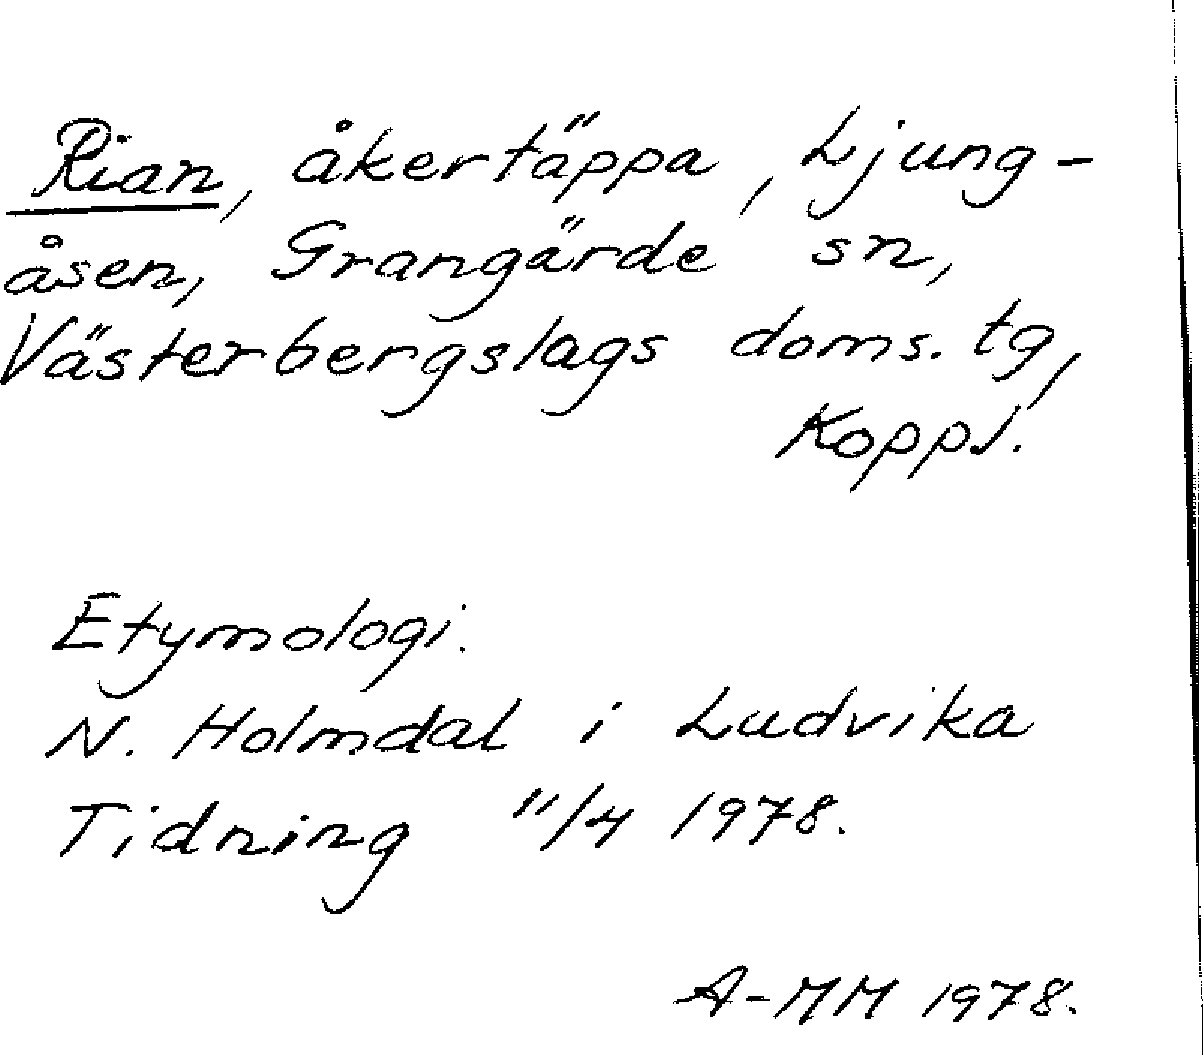 Rian, åkertäppa, Ljung-
åsen, Grangärde sn,
Västerbergslags doms. tg,
Koppl.
Etymologi.
N. Holmdal i Ludvika
Tidning 11/4 1978.
A-MM 1978.